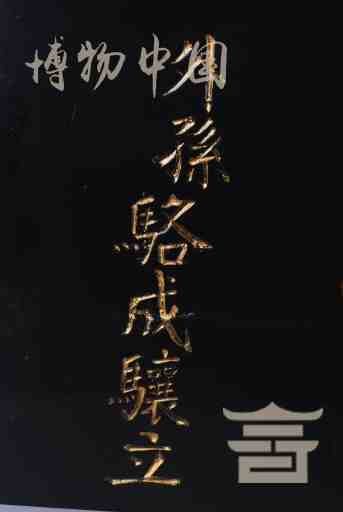 博物中国
外孫
駱成驤立